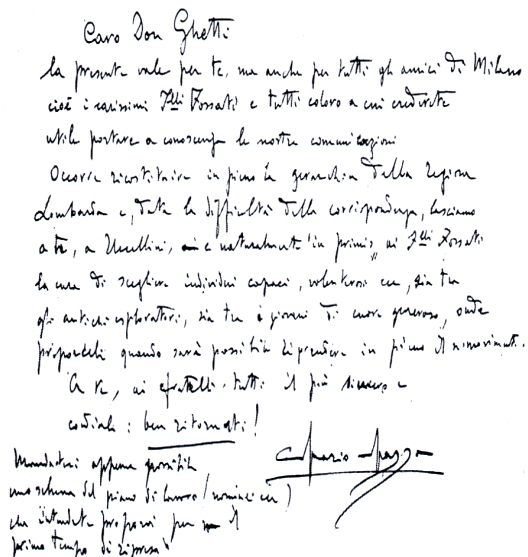 Caro Don Ghetti
la presente vale per te, ma anche per tutti gli amici di Milano
cioè i carissimi F.lli Fossati e tutti coloro a cui crederete
utile portare a conoscenza le nostre comunicazioni
Occorre ricostituire in pieno la gerarchia della Regione
Lombarda e, data la difficoltà della corrispondenza, lasciamo
a te, a Uccellini, e naturalmente "in primis" ai F.lli Fossati
la cura di scegliere individui capaci, volenterosi ecc, sia tra
gli antichi esploratori, sia tra i giovani di cuore generoso, onde
preporceli quando sarà possibile riprendere in pieno il ns movimento.
A te, ai fratelli tutti il più sincero e
cordiale: ben ritornati!
Mandateci appena possibile
uno schema del piano di lavoro (nomine ecc)
che intendete proporci per il
primo tempo di ripresa
Mario